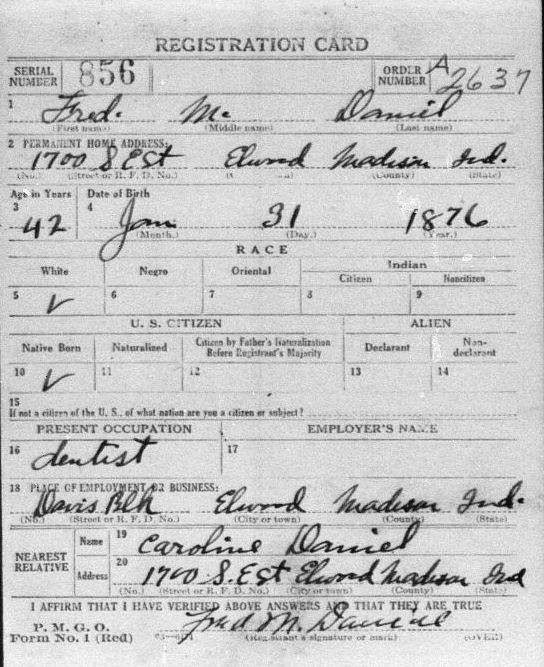 REGISTRATION CARD
SERIAL NUMBER 856 ORDER NUMBER A2637
1 Fred. M. Daniel
(First name) (Middle name) (Last name)
2 PERMANENT HOME ADDRESS:
1700 S. E St Elwood Madison Ind.
(No.) (Street or R. F. D. No.) (County) (State)
Age in Years Date of Birth
3 42 4 Jan 31 1876
(Month.) (Day.) (Year.)
RACE
White Negro Oriental Indian
Citizen Noncitizen
5 ✓ 6 7 8 9
U. S. CITIZEN ALIEN
Native Born Naturalized Citizen by Father's Naturalization Before Registrant's Majority Declarant Non-declarant
10 ✓ 11 12 13 14
15
If not a citizen of the U. S., of what nation are you a citizen or subject?
PRESENT OCCUPATION EMPLOYER'S NAME
16 dentist 17
18 PLACE OF EMPLOYMENT OR BUSINESS:
Davis Blk Elwood Madison Ind.
(No.) (Street or R. F. D. No.) (City or town) (County) (State)
NEAREST RELATIVE Name 19 Caroline Daniel
Address 20 1700 S. E St Elwood Madison Ind
(No.) (Street or R. F. D. No.) (City or town) (County) (State)
I AFFIRM THAT I HAVE VERIFIED ABOVE ANSWERS AND THAT THEY ARE TRUE
P. M. G. O.
Form No. 1 (Red) Fred M. Daniel
(Registrant's signature or mark) (OVER)